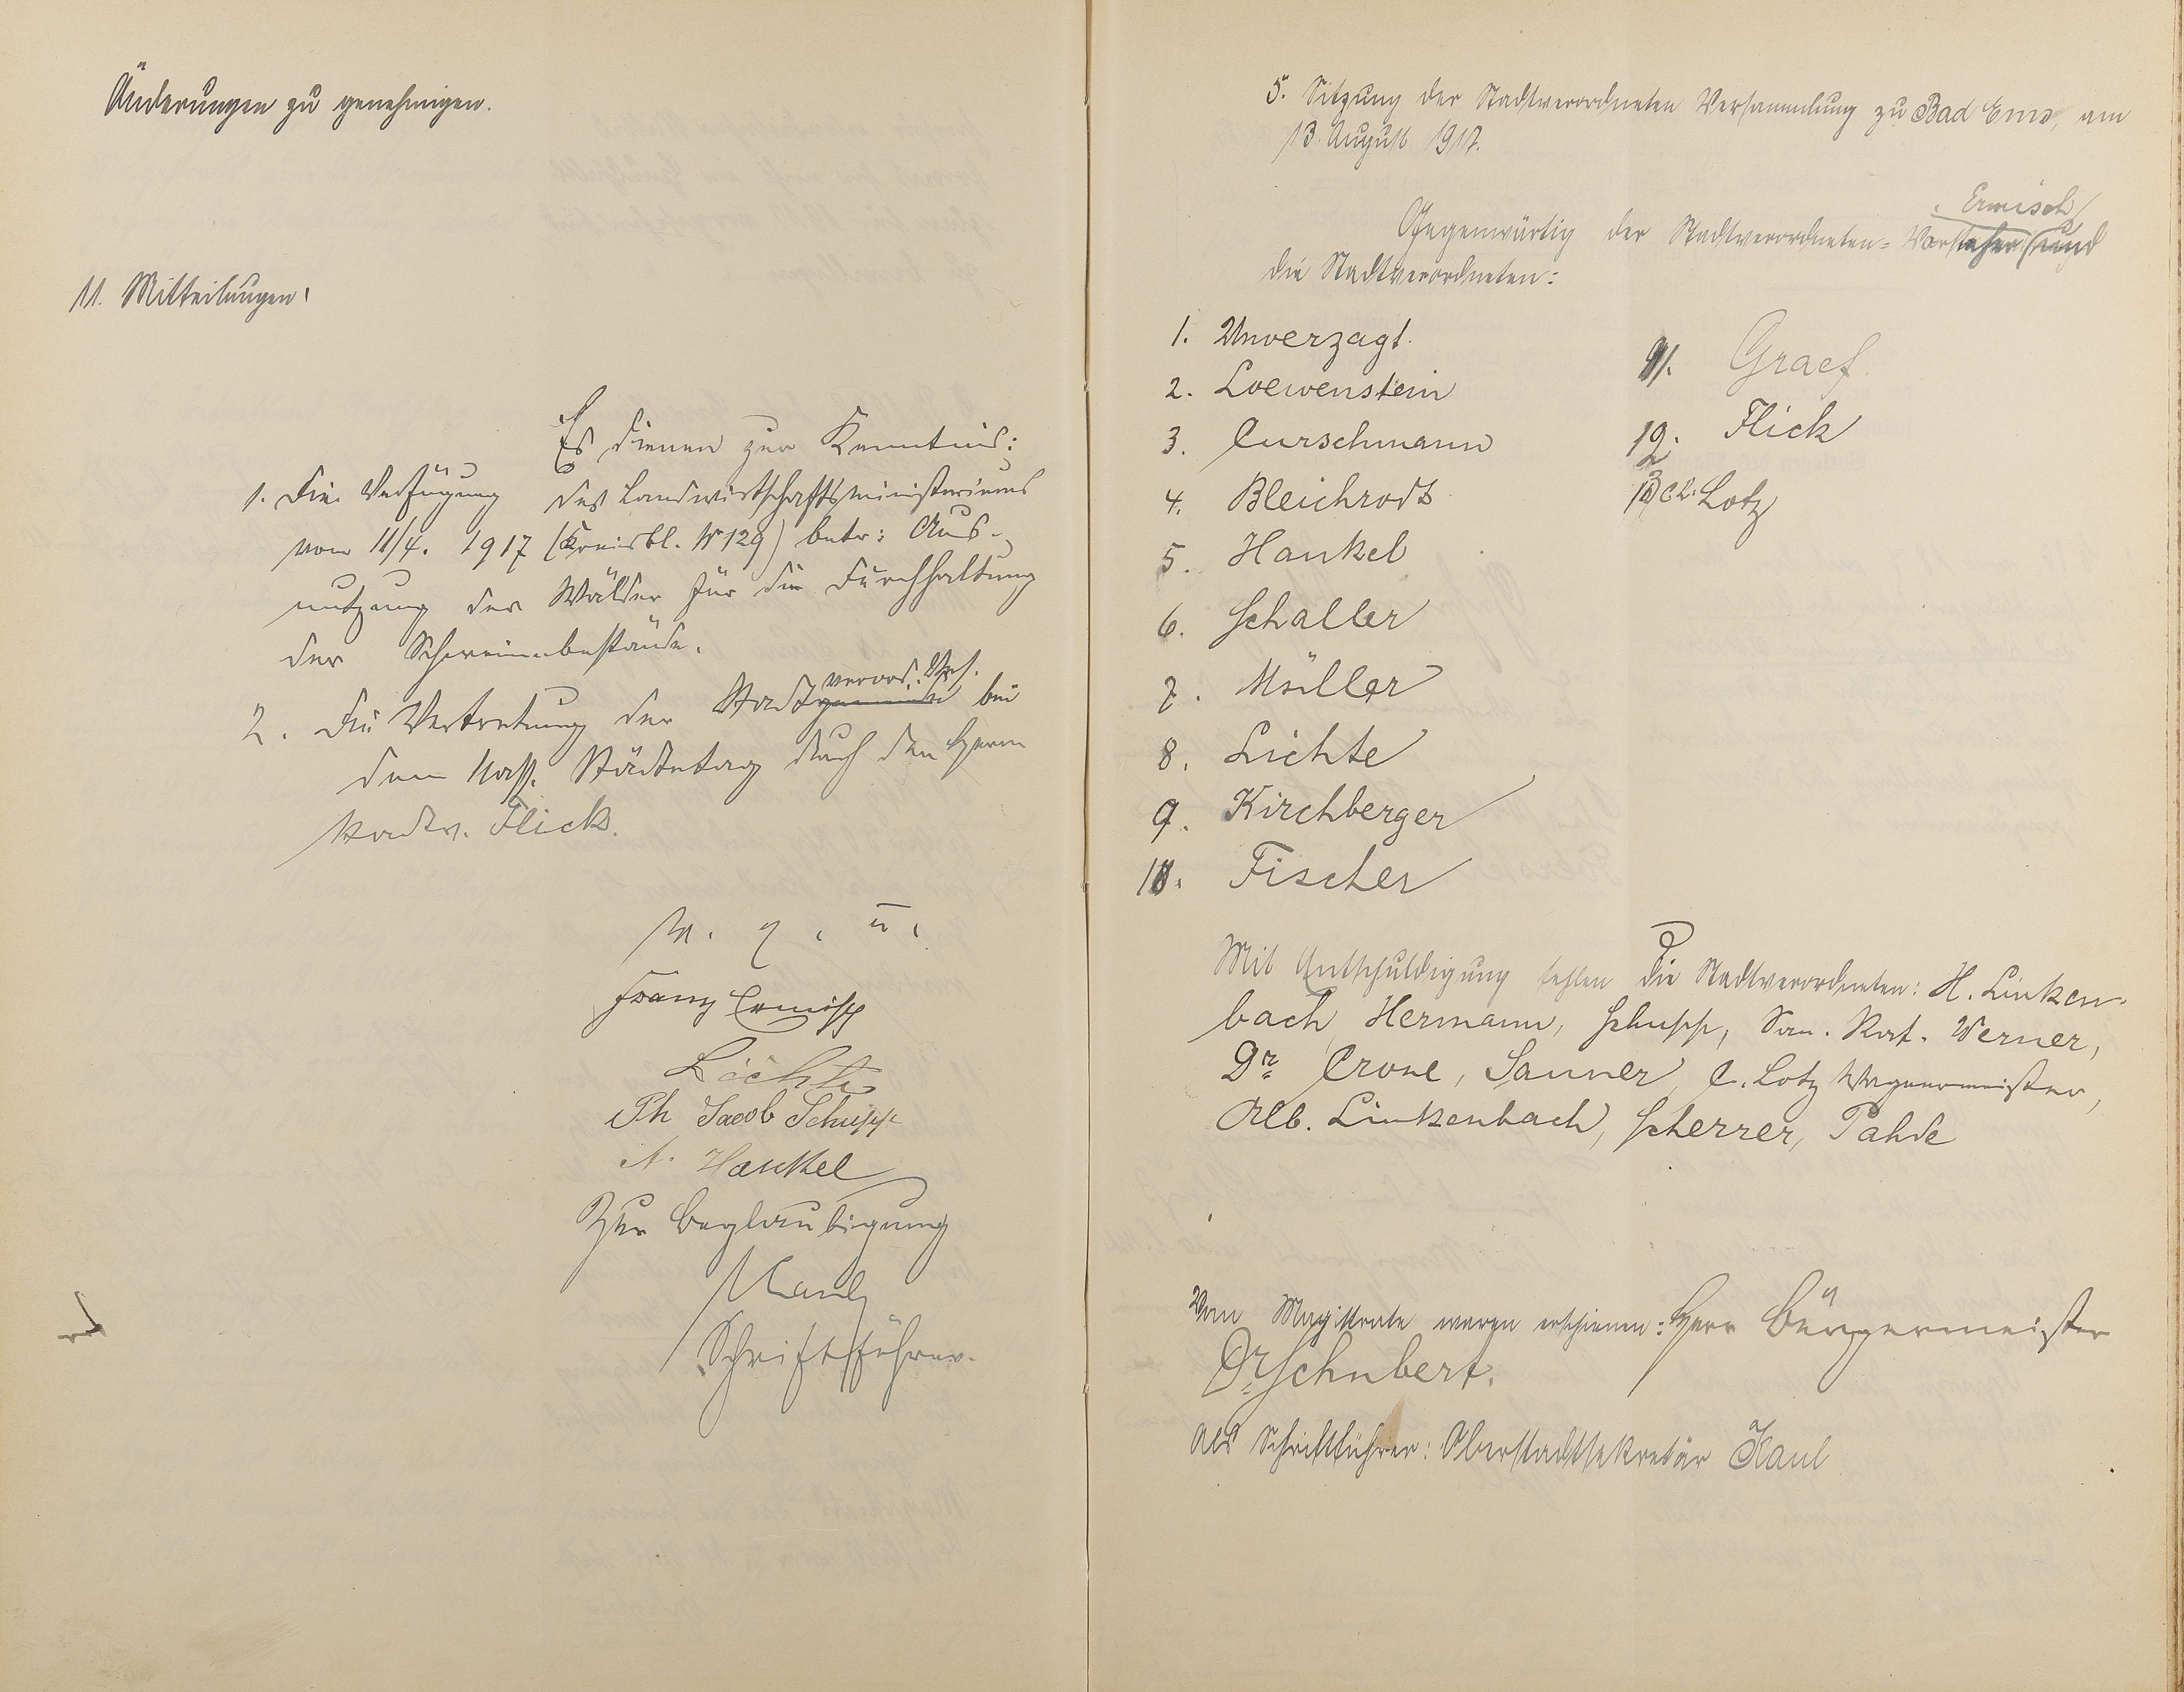 Änderungen zu genehmigen.
11. Mitteilungen:
Es dienen zur Kenntnis:
1. Die Verfügung des Landwirtschaftsministeriums
vom 11/4. 1917 (Kreisbl. № 129) betr: Aus-
nutzung der Wälder für die Durchhaltung
der Schweinebestände.
2. Die Vertretung der Stadtverord. Vers. bei
dem Nass. Städtetag durch den Herrn
Stadtv. Flick.
v. g. u.
Franz Ermisch
Lichte
Ph Jacob Schupp
A. Hankel
Zur Beglaubigung
Kaul
Schriftführer.
5. Sitzung der Stadtverordneten Versammlung zu Bad Ems, am
13. August 1917.
Gegenwärtig der Stadtverordneten-Vorsteher Ermisch und
die Stadtverordneten:
1. Unverzagt.
2. Loewenstein
3. Curschmann
4. Bleichrodt
5. Hankel
6. Schaller
7. Müller
8. Lichte
9. Kirchberger
10. Fischer
11. Graef.
12. Flick
13. Lotz
Mit Entschuldigung fehlen die Stadtverordneten: H. Linken-
bach, Hermann, Schupp, San. Rat. Werner,
Dr. Crone, Sauner, C. Lotz Wagnermeister,
Alb. Linkenbach, Scherrer, Pahde
Vom Magistrate waren erschienen: Herr Bürgermeister
Dr. Schubert.
Als Schriftführer: Oberstadtsekretär Kaul